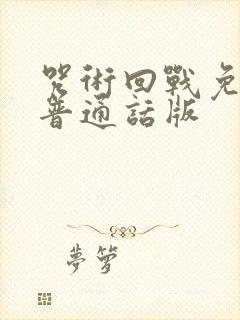 咒術回戰免
普通話版
夢籮